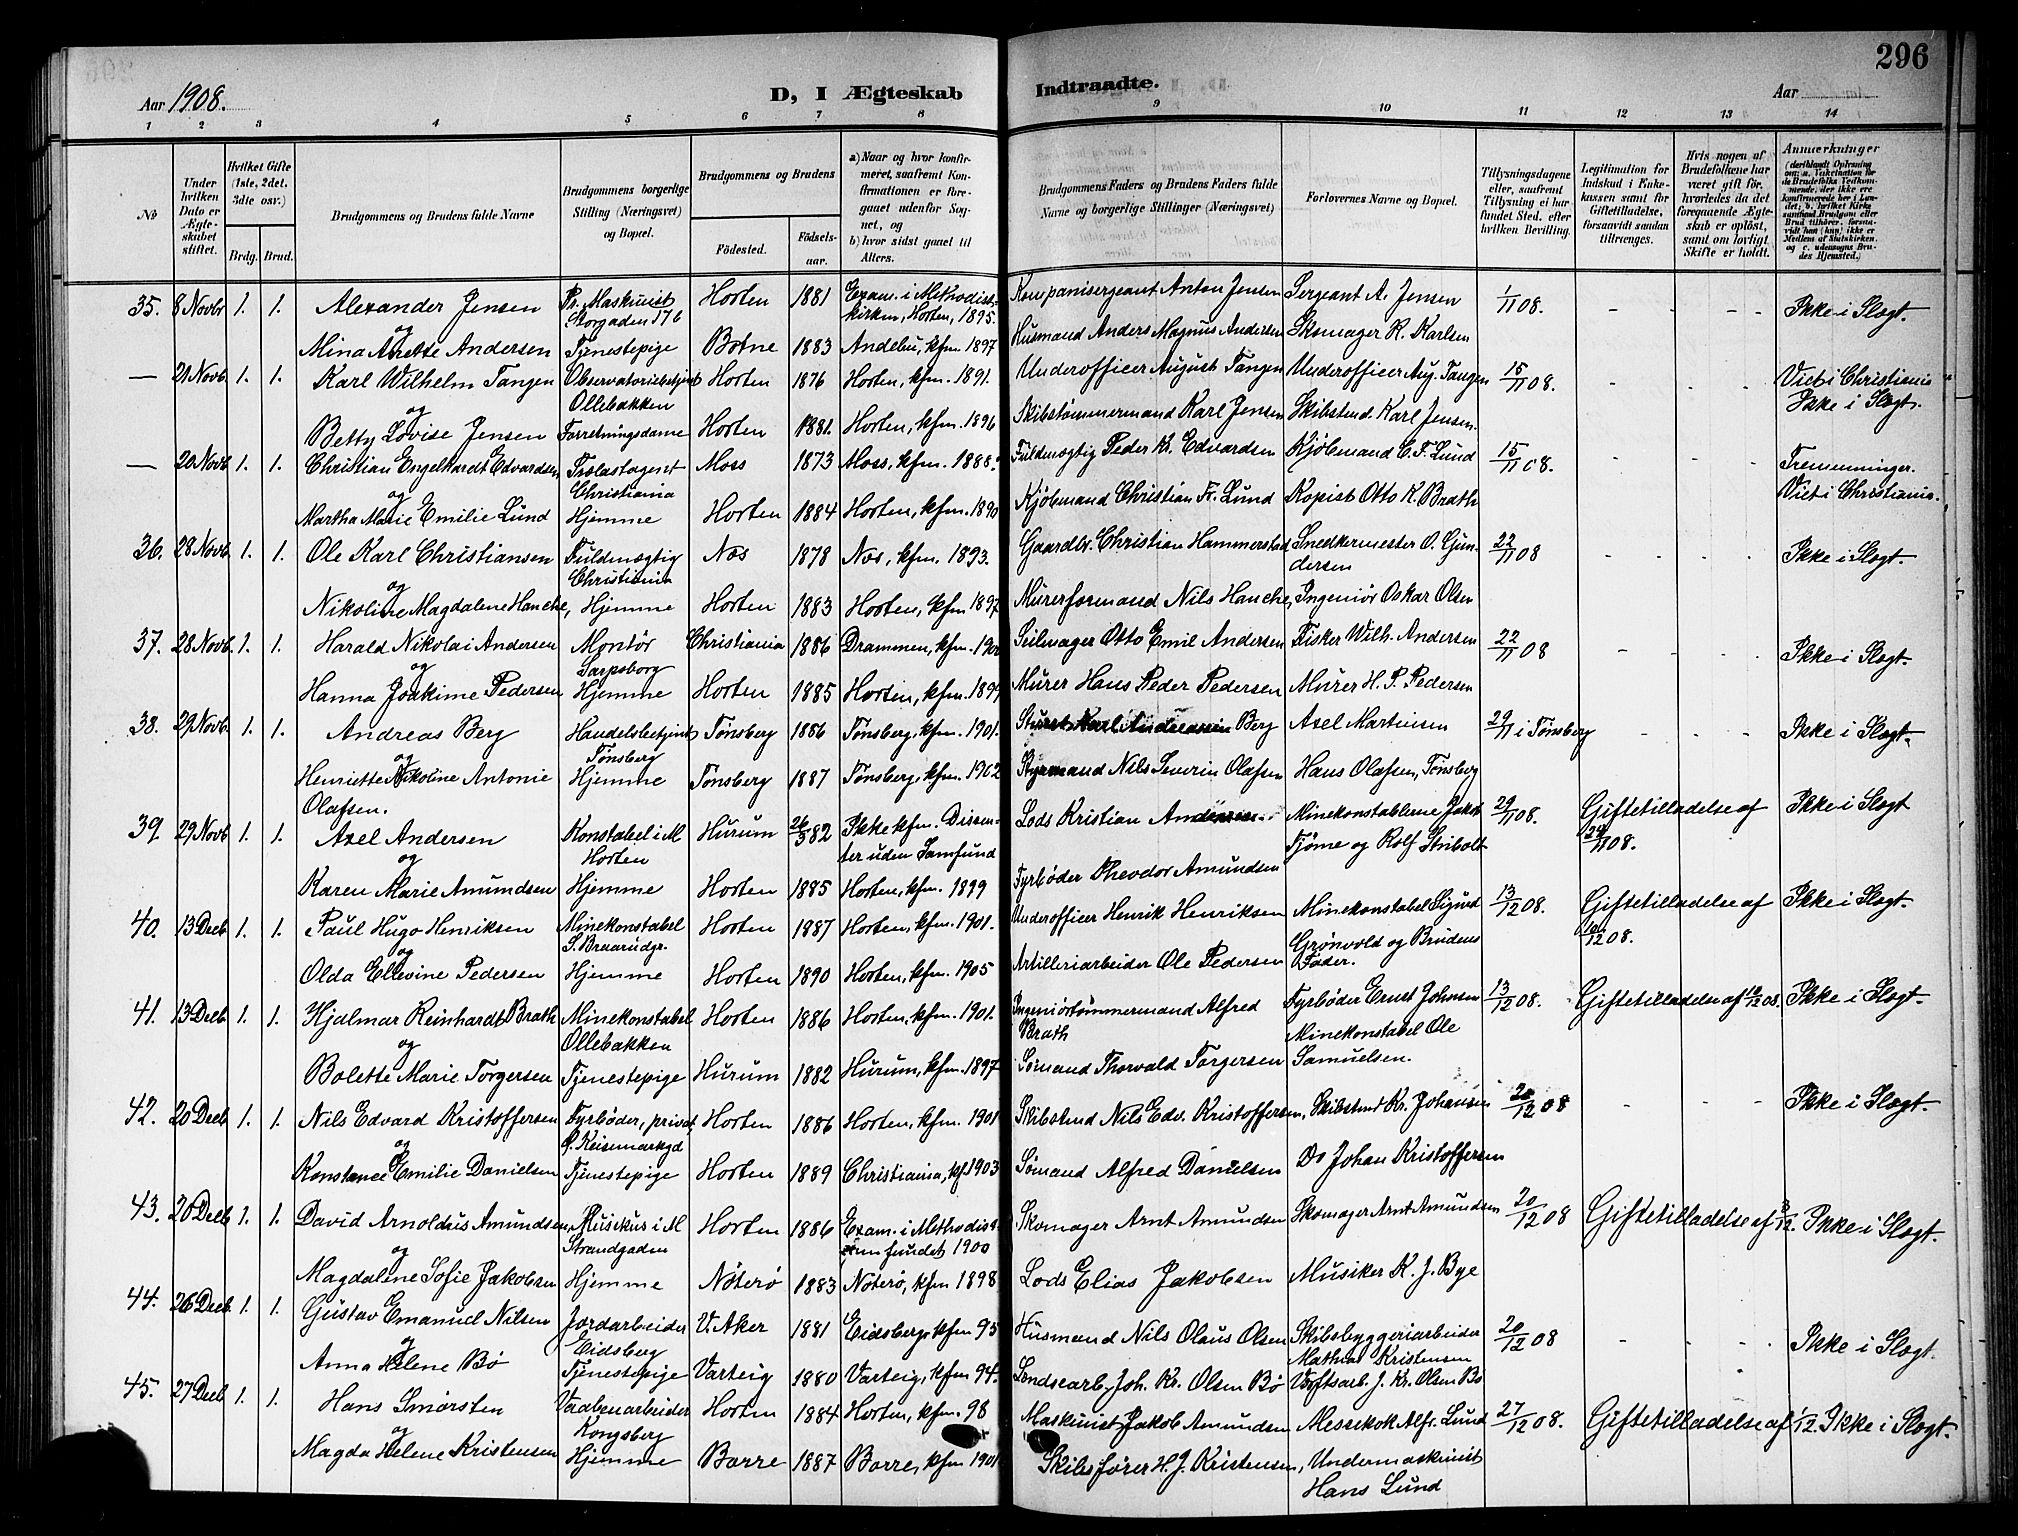 296
Aar 1908.
D, I Ægteskab Indtraadte.
Aar
1 2 3 4 5 6 7 8 9 10 11 12 13 14
No
Under hvilken Dato er Ægteskabet stiftet.
Hvilket Gifte (1ste, 2det, 3die osv.)
Brdg. Brud.
Brudgommens og Brudens fulde Navne
Brudgommens borgerlige Stilling (Næringsvei) og Bopæl.
Brudgommens og Brudens
Födested. Födselsaar.
a) Naar og hvor konfirmeret, saafremt Konfirmationen er foregaaet udenfor Sognet, og
b) hvor sidst gaaet til Alters.
Brudgommens Faders og Brudens Faders fulde Navne og borgerlige Stillinger (Næringsvei)
Forlovernes Navne og Bopæl.
Tillysningsdagene eller, saafremt Tillysning ei har fundet Sted, efter hvilken Bevilling.
Legitimation for Indskud i Enkekassen samt for Giftetilladelse, forsaavidt saadan tiltrænges.
Hvis nogen af Brudefolkene har været gift för, hvorledes da det foregaaende Ægteskab er oplöst, samt om lovligt Skifte er holdt.
Anmærkninger
35. 8 Novbr 1. 1. Alexander Jensen Maskinist Storgaden 17b Horten 1881 Exam. i Methodistkirken, Horten, 1895. Kompanisergeant Anton Jensen Sergeant A. Jensen 1/11 08. - - - - Ikke i Slægt.
og
Mina Anette Andersen Tjenestepige Botne 1883 Andebu, kfm. 1897 Husmand Anders Magnus Andersen Skomager K. Karlsen
— 21 Novb. 1. 1. Karl Wilhelm Tangen Observatoriebetjent Ollebakken Horten 1876 Horten, kfm. 1891. Underofficer August Tangen Underofficer Aug. Tangen 15/11 08. - - - Viet i Christiania Ikke i Slægt.
og
Betty Lovise Jensen Forretningsdame Horten 1881. Horten, kfm. 1896 Skibstømmermand Karl Jensen Skibstmd. Karl Jensen.
— 20 Novb 1. 1. Christian Engelhardt Edvardsen Trælastagent Christiania Moss 1873 Moss, kfm. 1888. Fuldmægtig Peder Kr. Edvardsen Kjöbmand C. F. Lund 15/11 08. - - - Tremenninger. Viet i Christiania.
og
Martha Marie Emilie Lund Hjemme Horten 1884 Horten, kfm. 1890 Kjöbmand Christian Fr. Lund Kopist Otto K. Brath
36. 28 Novb. 1. 1. Ole Karl Christiansen Fuldmægtig Christiania Næs 1878 Næs, kfm. 1893. Gaardbr. Christian Hammerstad Snedkermester O. Gundersen 22/11 08 - - - Ikke i Slægt.
og
Nikoline Magdalene Hanche, Hjemme Horten 1883 Horten, kfm. 1897 Murerformand Nils Hanche, Ingeniör Oskar Olsen
37. 28 Novb. 1. 1. Harald Nikolai Andersen Montör Sarpsborg Christiania 1886 Drammen, kfm. Seilmager Otto Emil Andersen Fisker Wilh. Andersen 22/11 08 - - - Ikke i Slægt.
og
Hanna Joakime Pedersen Hjemme Horten 1885 Horten, kfm. 1899 Murer Hans Peder Pedersen Murer H. P. Pedersen
38. 29 Novb. 1. 1. Andreas Berg Handelsbetjent Tønsberg Tønsberg 1886 Tønsberg, kfm. 1901. Berg Axel Martinsen 29/11 i Tønsberg - - - Ikke i Slægt.
og
Henriette Nikoline Antonie Olafsen. Hjemme Tønsberg 1887 Tønsberg, kfm. 1902 Styrmand Nils Severin Olafsen Hans Olafsen, Tønsberg
39. 29 Novb 1. 1. Axel Andersen Konstabel i M. Horten Hurum 26/3 82 Ikke kfm. Dissenter uden Samfund Lods Kristian Andersen Minekonstablerne Jakob Tjöme og Rolf Stribolt 29/11 08. Giftetilladelse af 24/11 08. Ikke i Slægt
og
Karen Marie Amundsen Hjemme Horten 1885 Horten, kfm. 1899 Fyrböder Theodor Amundsen
40. 13 Decb 1. 1. Paul Hugo Henriksen Minekonstabel S. Braarudgr. Horten 1887 Horten, kfm. 1901. Underofficer Henrik Henriksen Minekonstabel Sigurd Grønvold og Brudens Fader. 13/12 08. Giftetilladelse af 10/12 08. Ikke i Slægt.
og
Olda Ellevine Pedersen Hjemme Horten 1890 Horten, kfm. 1905 Artilleriarbeider Ole Pedersen
41. 13 Decb 1. 1. Hjalmar Reinhardt Brath Minekonstabel Ollebakken Horten 1886 Horten, kfm. 1901. Ingeniörtömmermand Alfred Brath Fyrböder Ernst Johnsen Minekonstabel Ole Samuelsen. 13/12 08. Giftetilladelse af 10/12 08. Ikke i Slægt.
og
Bolette Marie Torgersen Tjenestepige Hurum 1882 Hurum, kfm. 1897 Sømand Thorvald Torgersen
42. 20 Decb 1. 1. Nils Edvard Kristoffersen Fyrböder, privat, Ø. Keisemarkgd Horten 1886 Horten, kfm. 1901 Skibstmd Nils Edv. Kristoffersen, Skibstmd Kr. Johansen 20/12 08 - - Ikke i Slægt.
og
Konstance Emilie Danielsen Tjenestepige Horten 1889 Christiania, kf. 1903 Sømand Alfred Danielsen Do Johan Kristoffersen
43. 20 Decb 1. 1. David Arnoldus Amundsen, Musikus i M Strandgaden Horten 1886 Exam. i Methodistsamfundet 1900 Skomager Arnt Amundsen Skomager Arnt Amundsen 20/12 08 Giftetilladelse af 3/12. Ikke i Slægt.
og
Magdalene Sofie Jakobsen Hjemme Nöterö 1883 Nöterö, kfm 1898 Lods Elias Jakobsen Musiker K. J. Bye
44. 26 Decb. 1. 1. Gustav Emanuel Nilsen Jordarbeider Eidsberg V. Aker 1881 Eidsberg, kfm 95 Husmand Nils Olaus Olsen Skibsbyggeriarbeider Mathias Kristensen 20/12 08 - - - Ikke i Slægt.
og
Anna Helene Bö Tjenestepige Varteig 1880 Varteig, kfm 94. Londsearb. Joh. Kr. Olsen Bö Værftsarb. J. Kr. Olsen Bö
45. 27 Decb 1. 1. Hans Smørsten Vaabenarbeider Kongsberg Horten 1884 Horten, kfm. 98 Maskinist Jakob Amundsen Messekok Alfr. Lund 27/12 08. Giftetilladelse af 1/12. Ikke i Slægt.
og
Magda Helene Kristensen Hjemme Borre 1887 Borre, kfm 1901 Skibsfører H. J. Kristensen, Undermaskinist Hans Lund